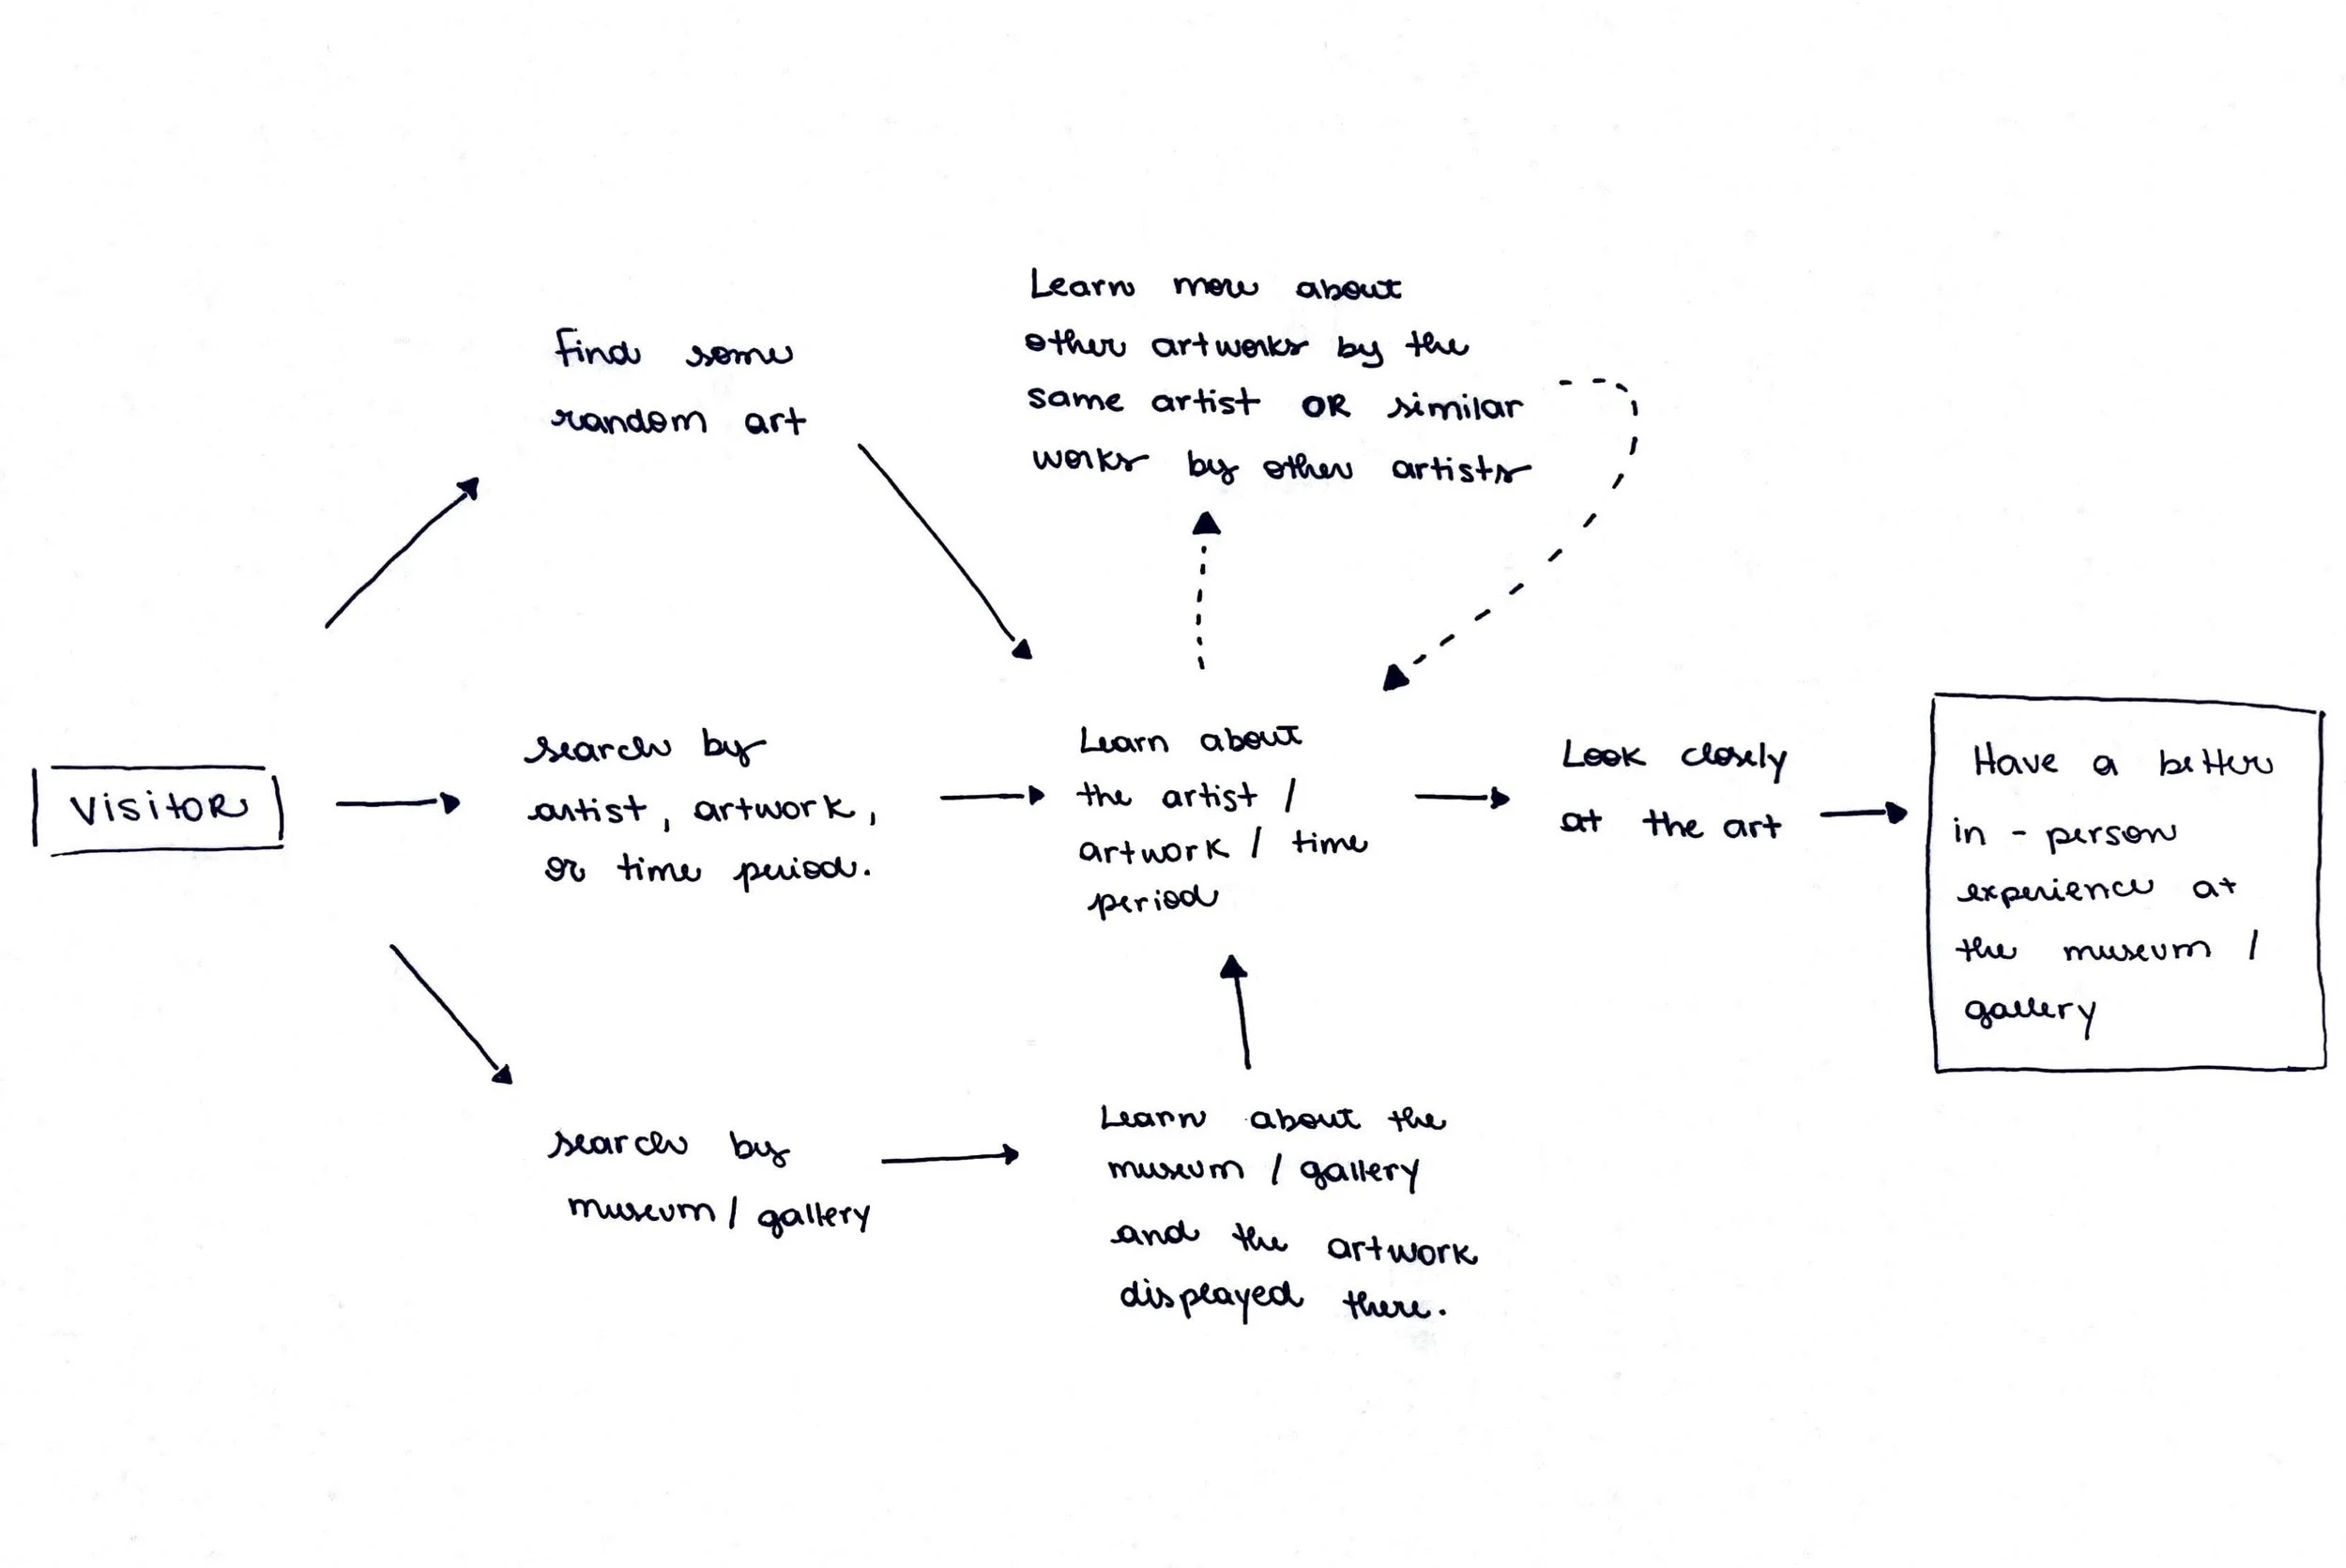 Learn more about
other artworks by the
same artist OR similar
works by other artists
find some
random art
VISITOR
search by
artist, artwork,
or time period.
Learn about
the artist /
artwork / time
period
Look closely
at the art
Have a better
in - person
experience at
the museum /
gallery
search by
museum / gallery
Learn about the
museum / gallery
and the artwork
displayed there.